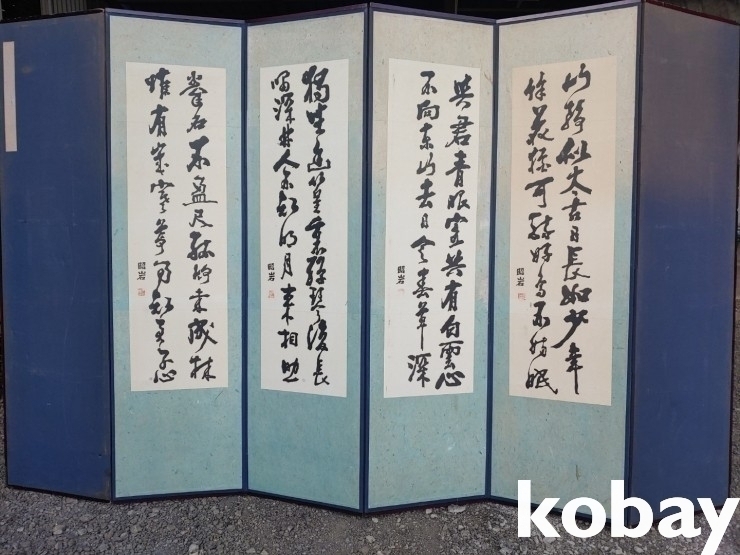 山静似太古日長如少年
餘花猶可醉好鳥不妨眠
昭岩
與君青眼客共有白雲心
不向東山去日令春草深
昭岩
獨坐幽篁裏彈琴復長
嘯深林人不知明月來相照
昭岩
拳石不盈尺孤竹未成林
惟有歲寒節乃知君子心
昭岩
kobay